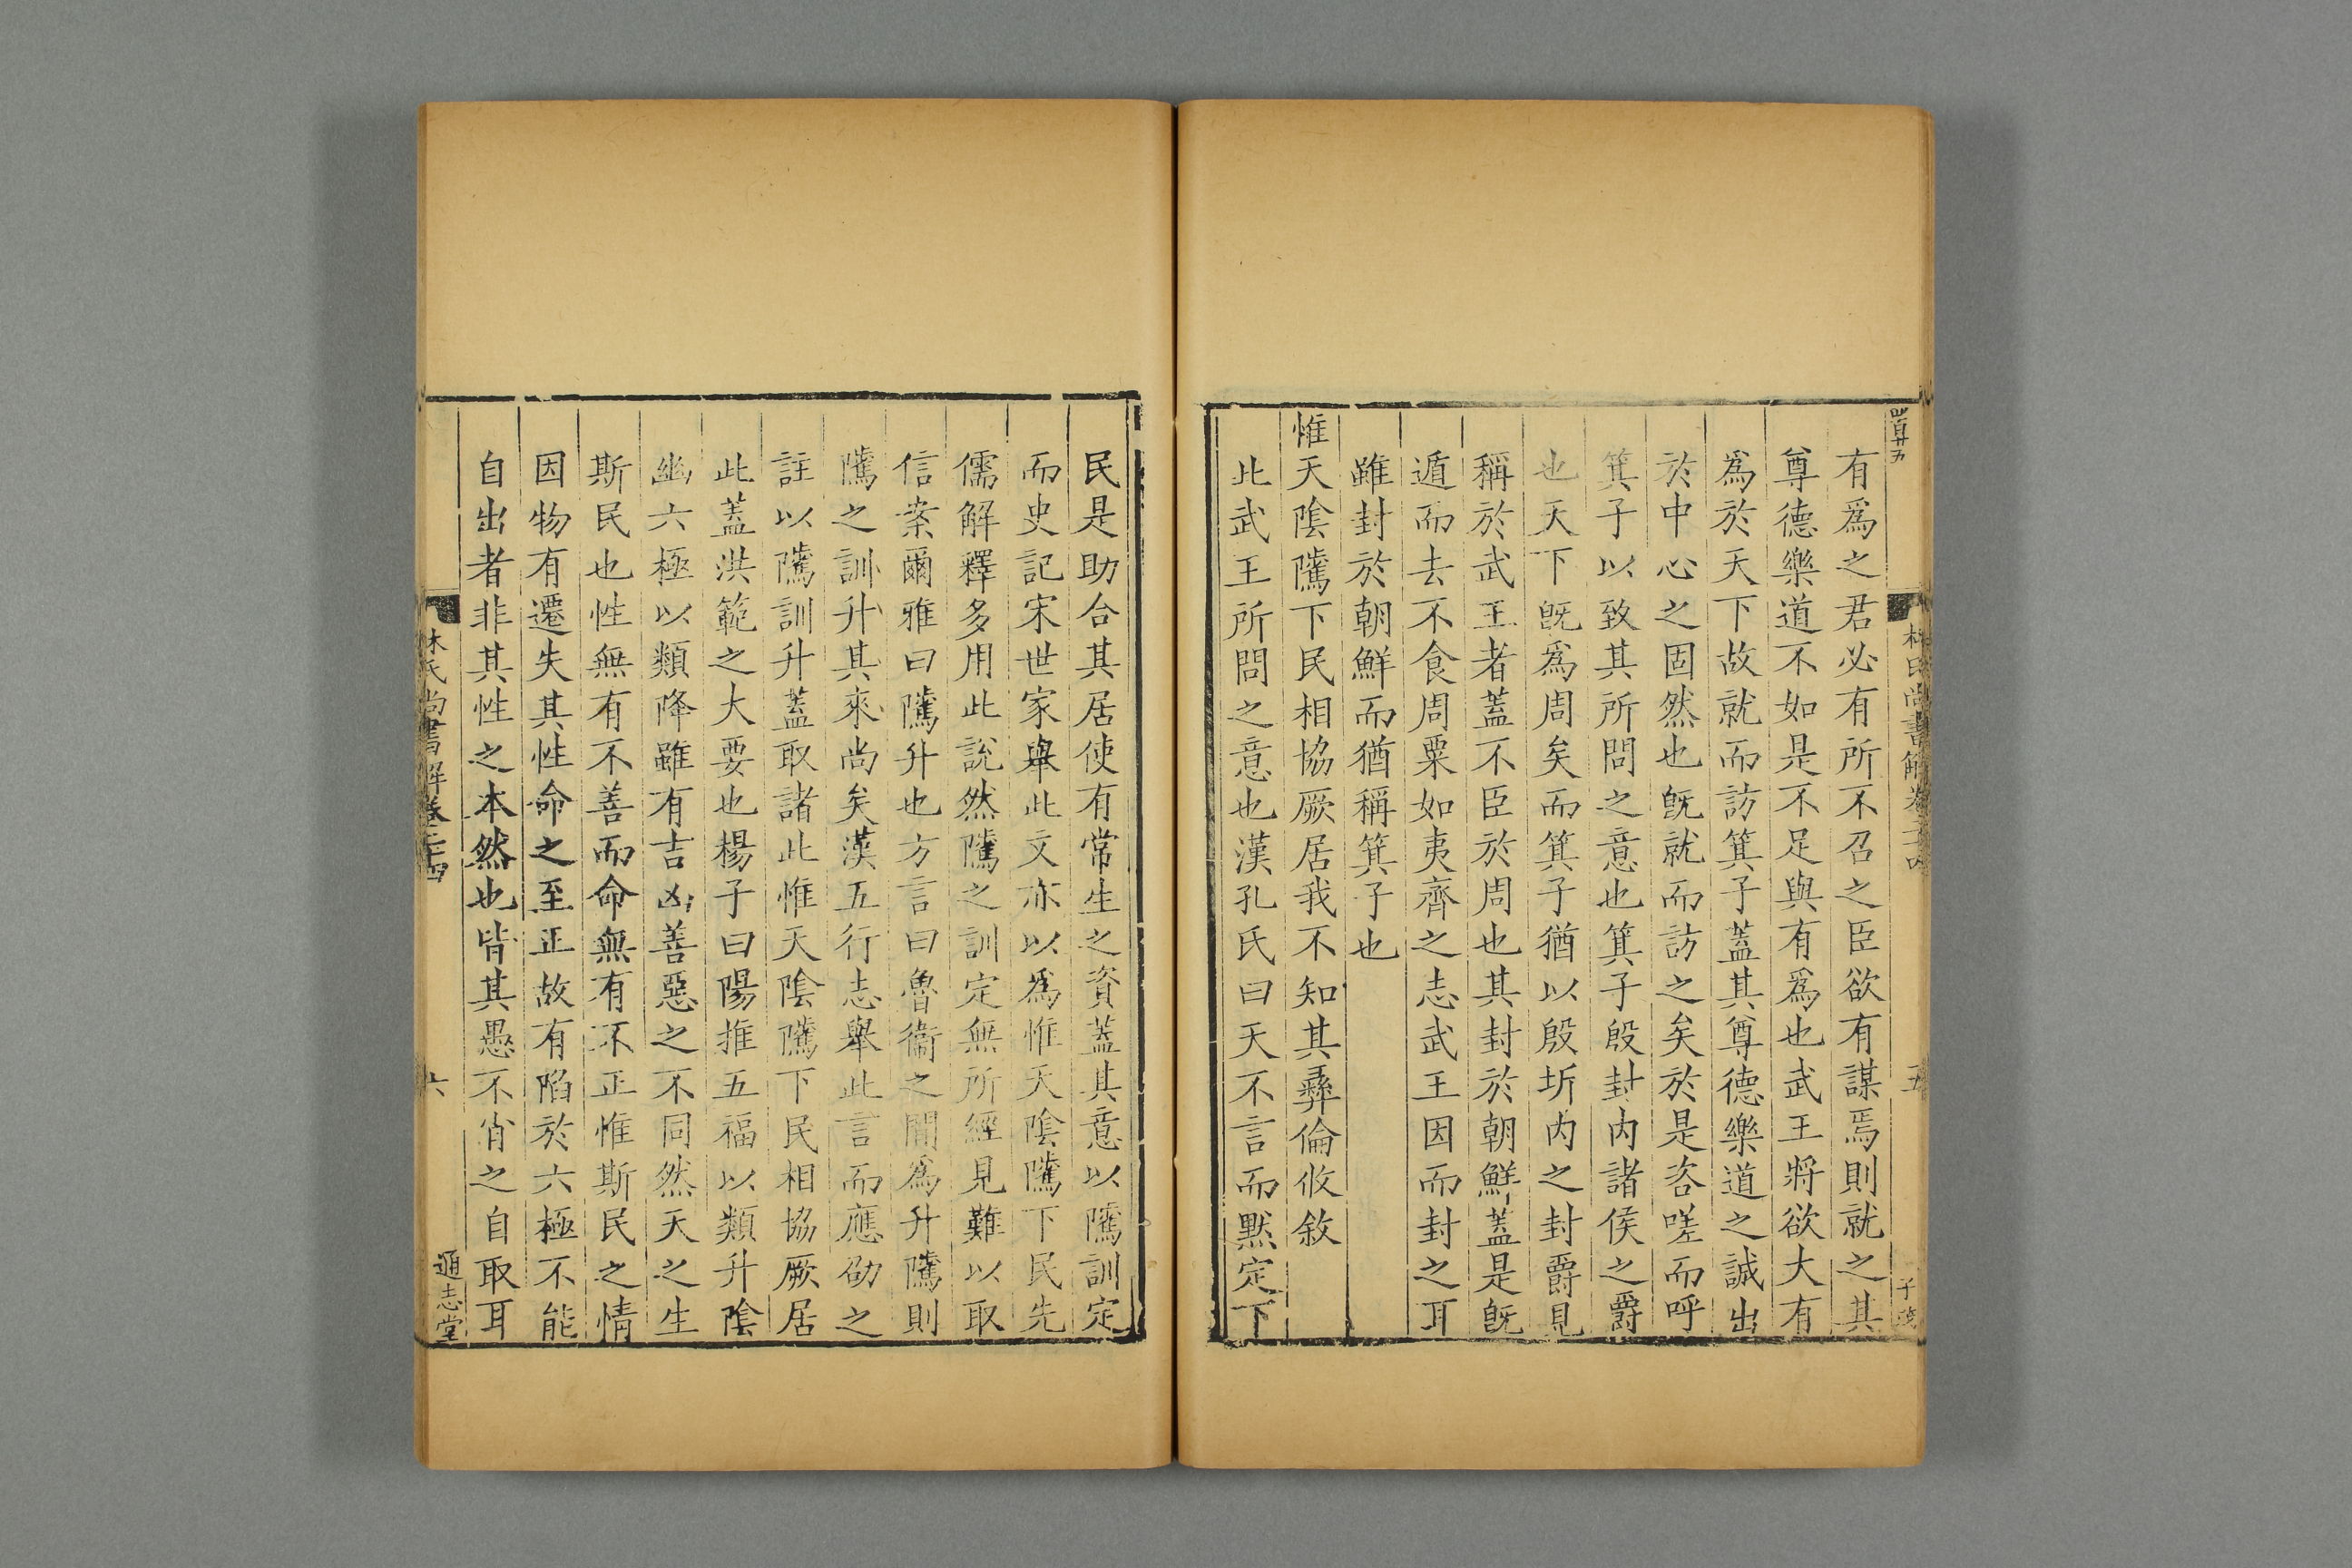 有爲之君必有所不召之臣欲有謀焉則就之其
尊德樂道不如是不足與有爲也武王將欲大有
爲於天下故就而訪箕子蓋其尊德樂道之誠出
於中心之固然也旣就而訪之矣於是咨嗟而呼
箕子以致其所問之意也箕子殷封内諸侯之爵
也天下旣爲周矣而箕子猶以殷圻内之封爵見
稱於武王者蓋不臣於周也其封於朝鮮蓋是旣
遁而去不食周粟如夷齊之志武王因而封之耳
雖封於朝鮮而猶稱箕子也
惟天陰隲下民相協厥居我不知其彝倫攸敘
此武王所問之意也漢孔氏曰天不言而默定下
民是助合其居使有常生之資蓋其意以隲訓定
而史記宋世家舉此文亦以爲惟天陰隲下民先
儒解釋多用此說然隲之訓定無所經見難以取
信案爾雅曰隲升也方言曰魯衞之間爲升隲則
隲之訓升其來尚矣漢五行志舉此言而應劭之
註以隲訓升蓋取諸此惟天陰隲下民相協厥居
此蓋洪範之大要也楊子曰陽推五福以類升陰
幽六極以類降雖有吉凶善惡之不同然天之生
斯民也性無有不善而命無有不正惟斯民之情
因物有遷失其性命之至正故有陷於六極不能
自出者非其性之本然也皆其愚不肖之自取耳
林氏尚書解卷二十四
六
通志堂